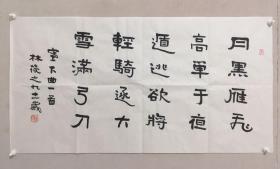 月黑雁飛
高單于夜
遁逃欲將
輕騎逐大
雪滿弓刀
塞下曲一首
林筱之九十歲